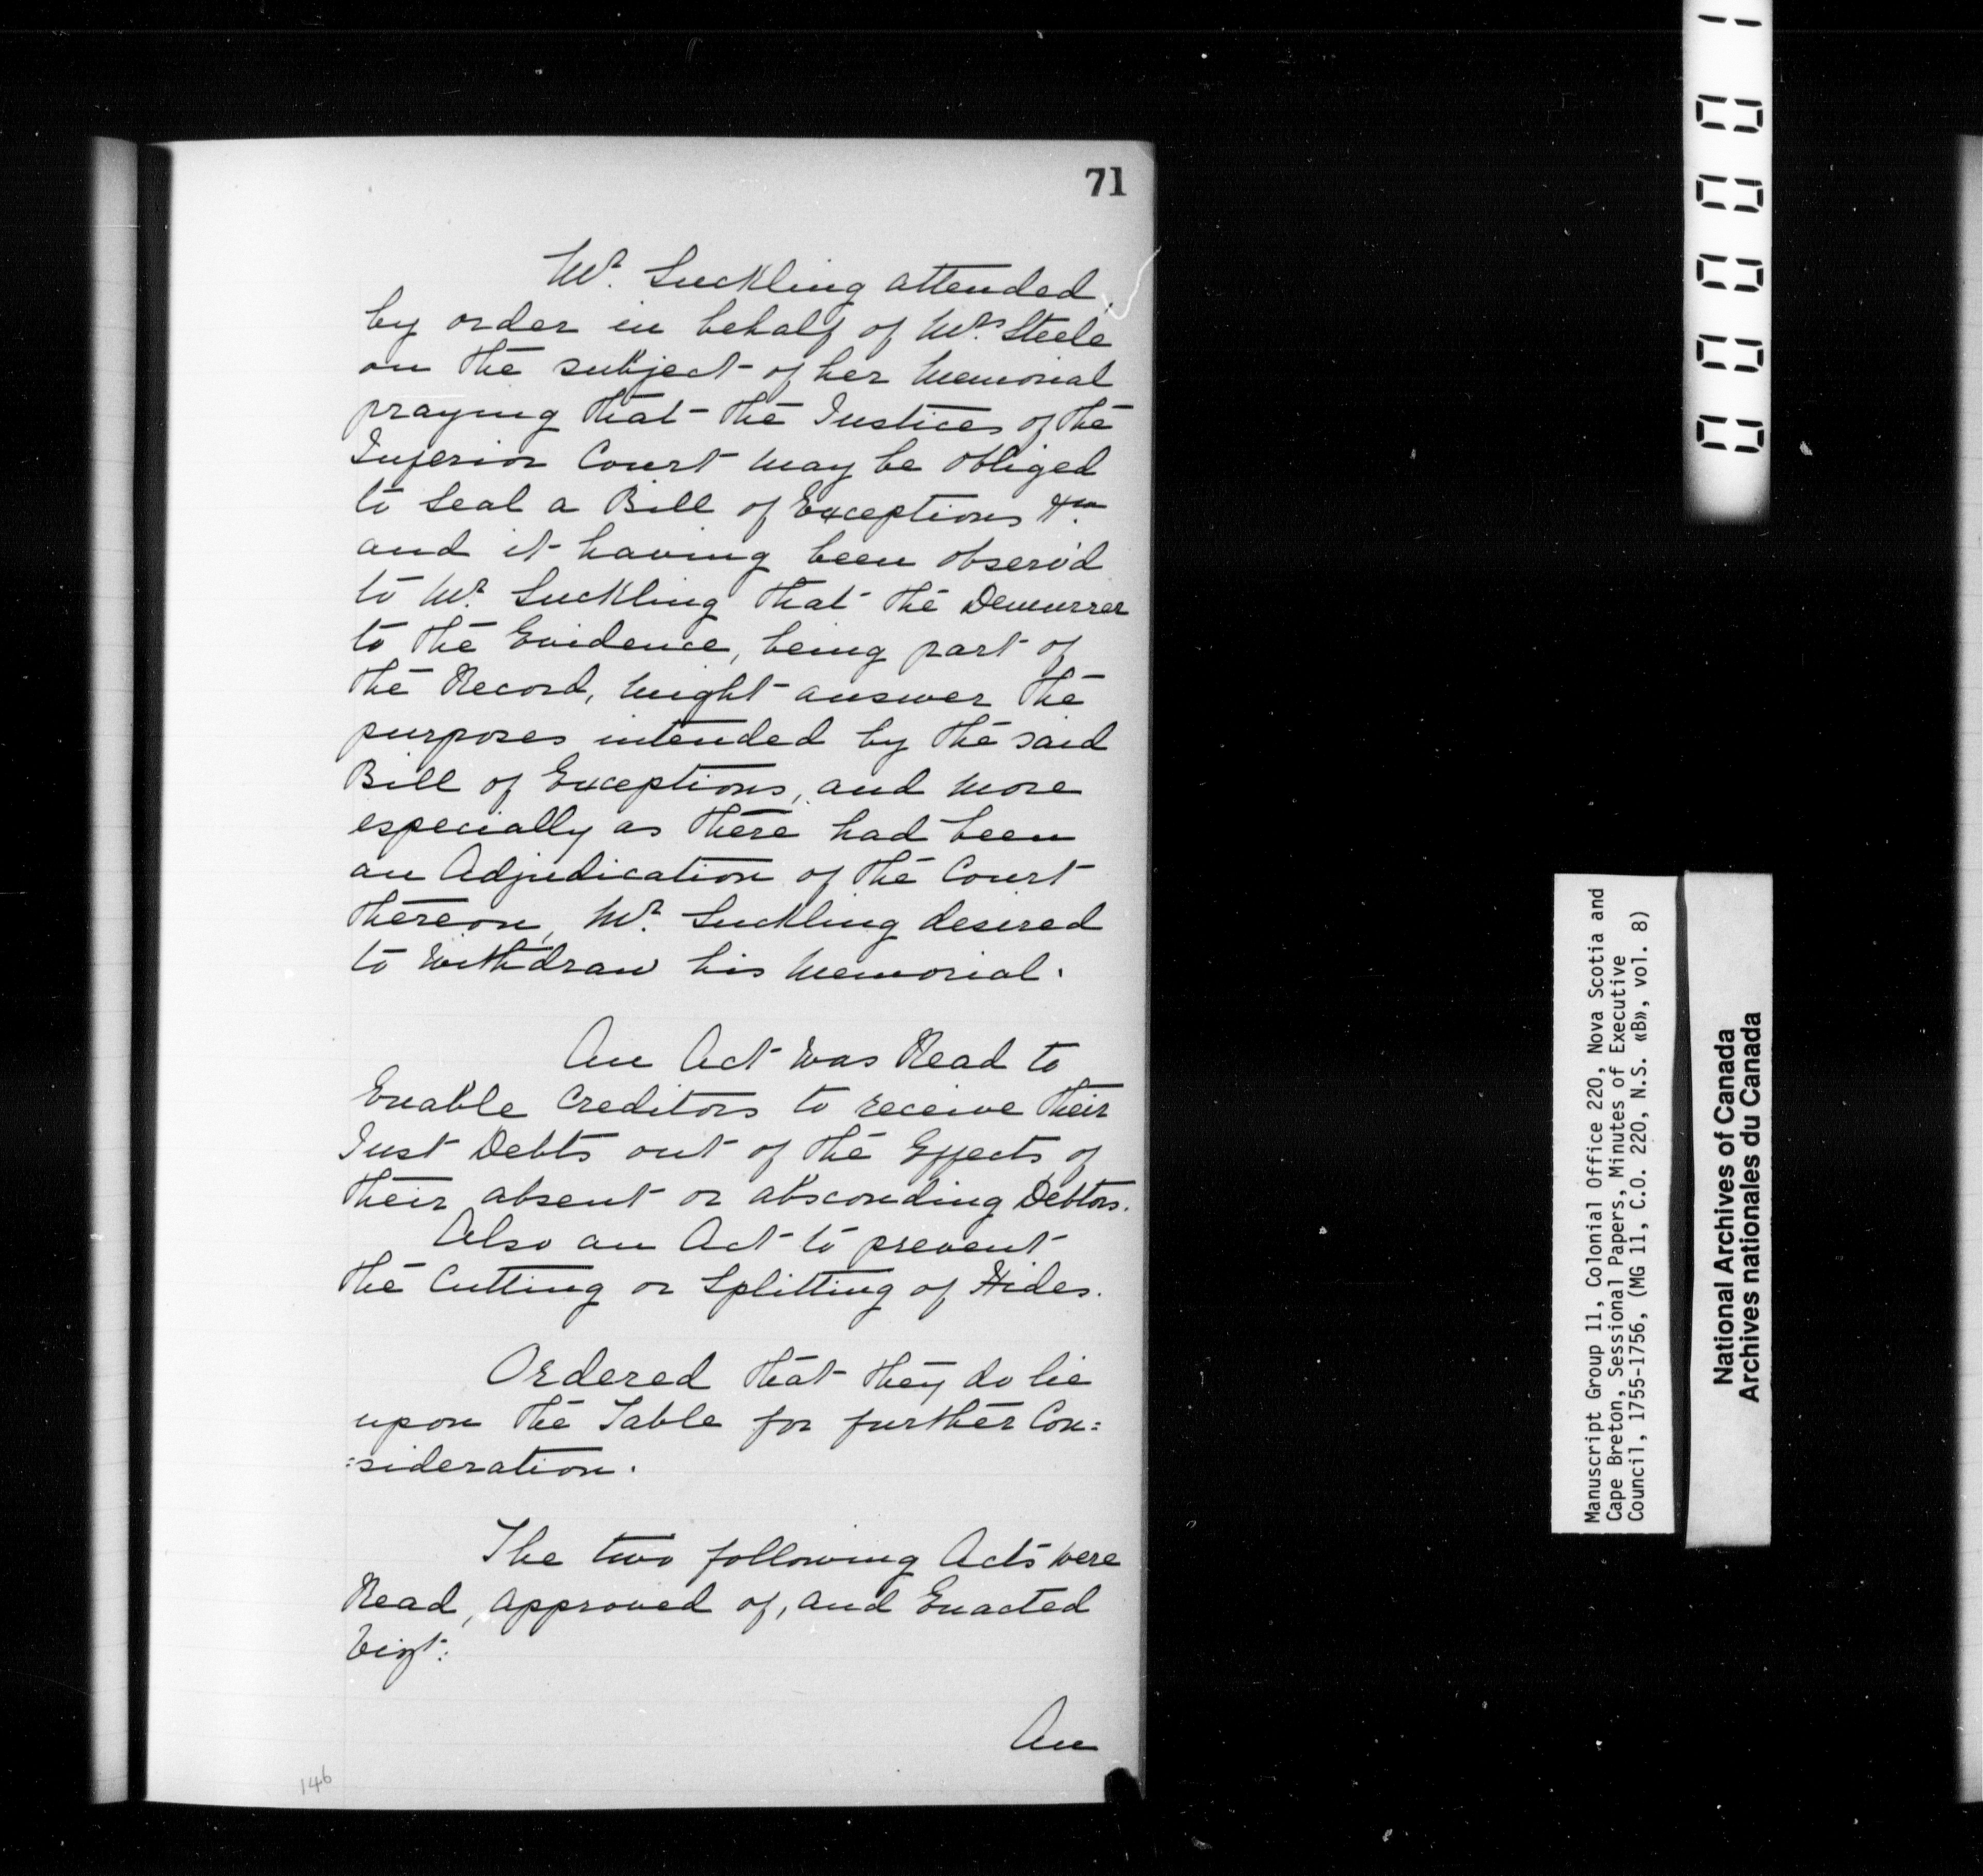 71
Mr. Suckling attended
by order in behalf of Mrs. Steele
on the subject of her Memorial
praying that the Justices of the
Inferior Court may be obliged
to Seal a Bill of Exceptions
and it having been observ'd
to Mr. Suckling that the Demurrer
to the Evidence, being part of
the Record, might answer the
purposes intended by the said
Bill of Exceptions, and more
especially as there had been
an Adjudication of the Court
thereon, Mr. Suckling desired
to withdraw his Memorial.
An Act was Read to
Enable Creditors to receive their
Just Debts out of the Effects of
their absent or absconding Debtors.
Also an Act to prevent
the Cutting or Splitting of Hides.
Ordered that they do lie
upon the Table for further Con=
=sideration.
The two following Acts were
Read, approved of, and Enacted
Vizt:
An
146
000001
Manuscript Group 11, Colonial Office 220, Nova Scotia and
Cape Breton, Sessional Papers, Minutes of Executive
Council, 1755-1756, (MG 11, C.O. 220, N.S. «B», vol. 8)
National Archives of Canada
Archives nationales du Canada